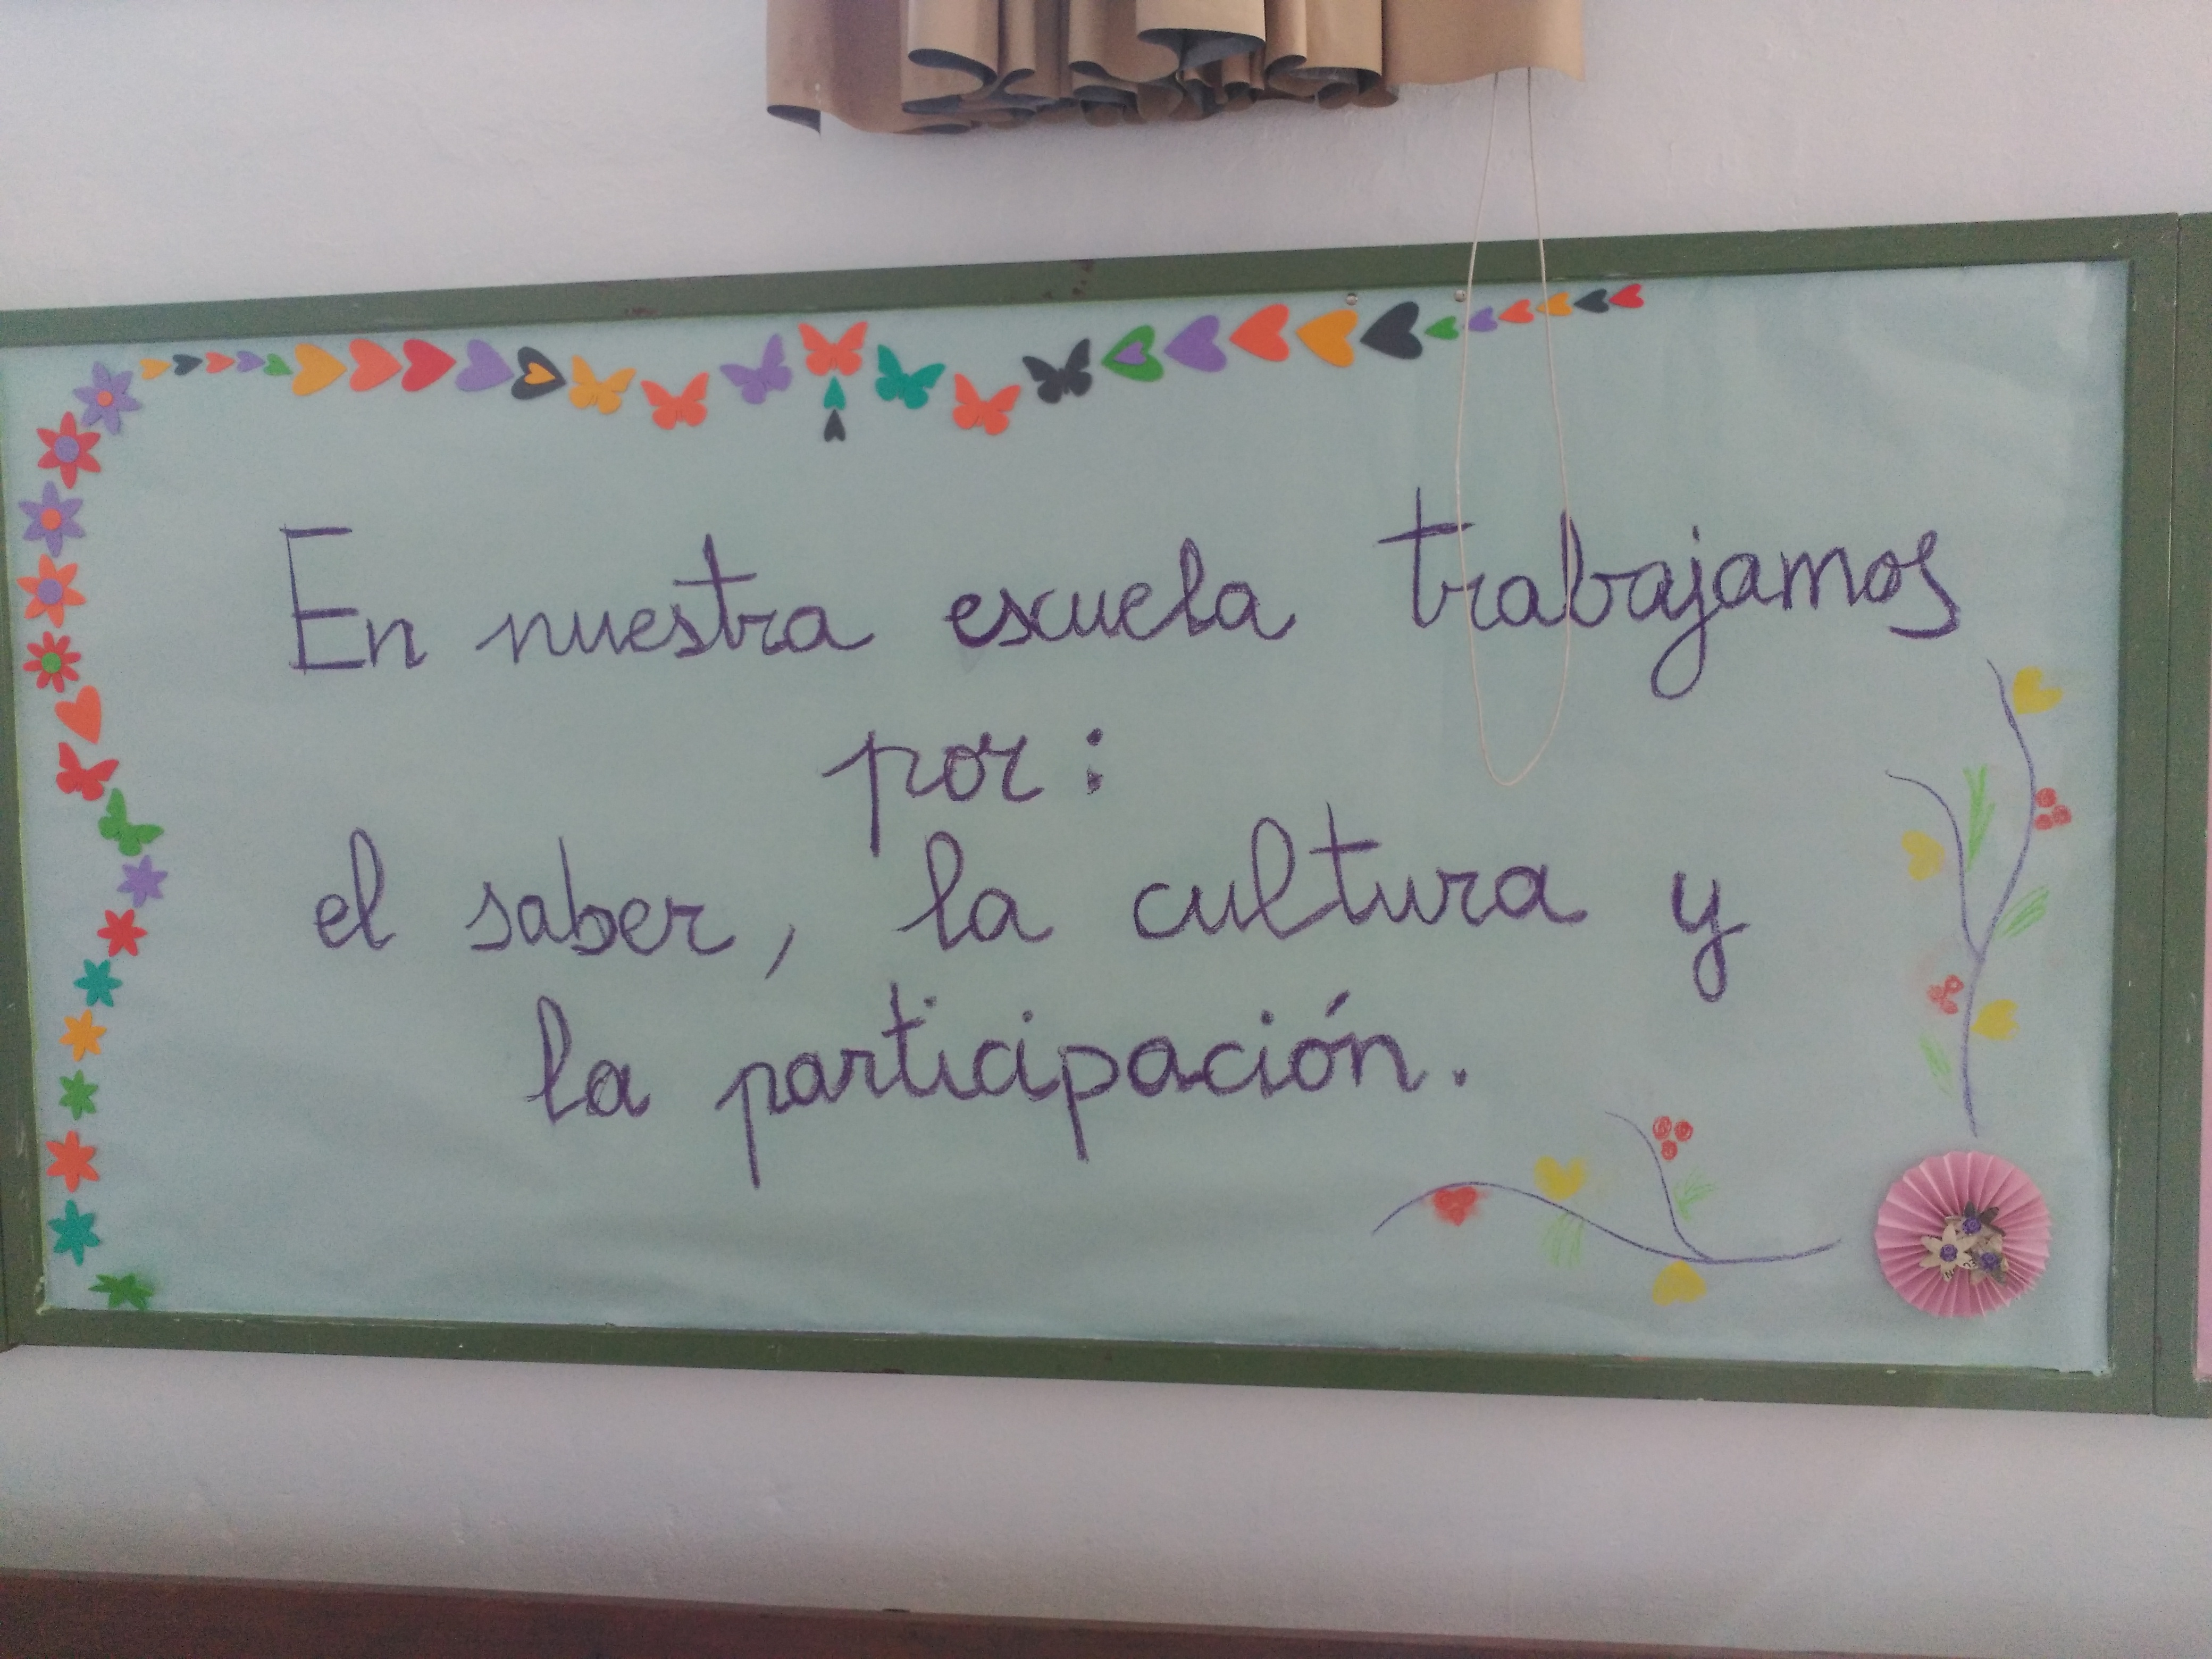 En nuestra escuela trabajamos
por:
el saber, la cultura y
la participación.